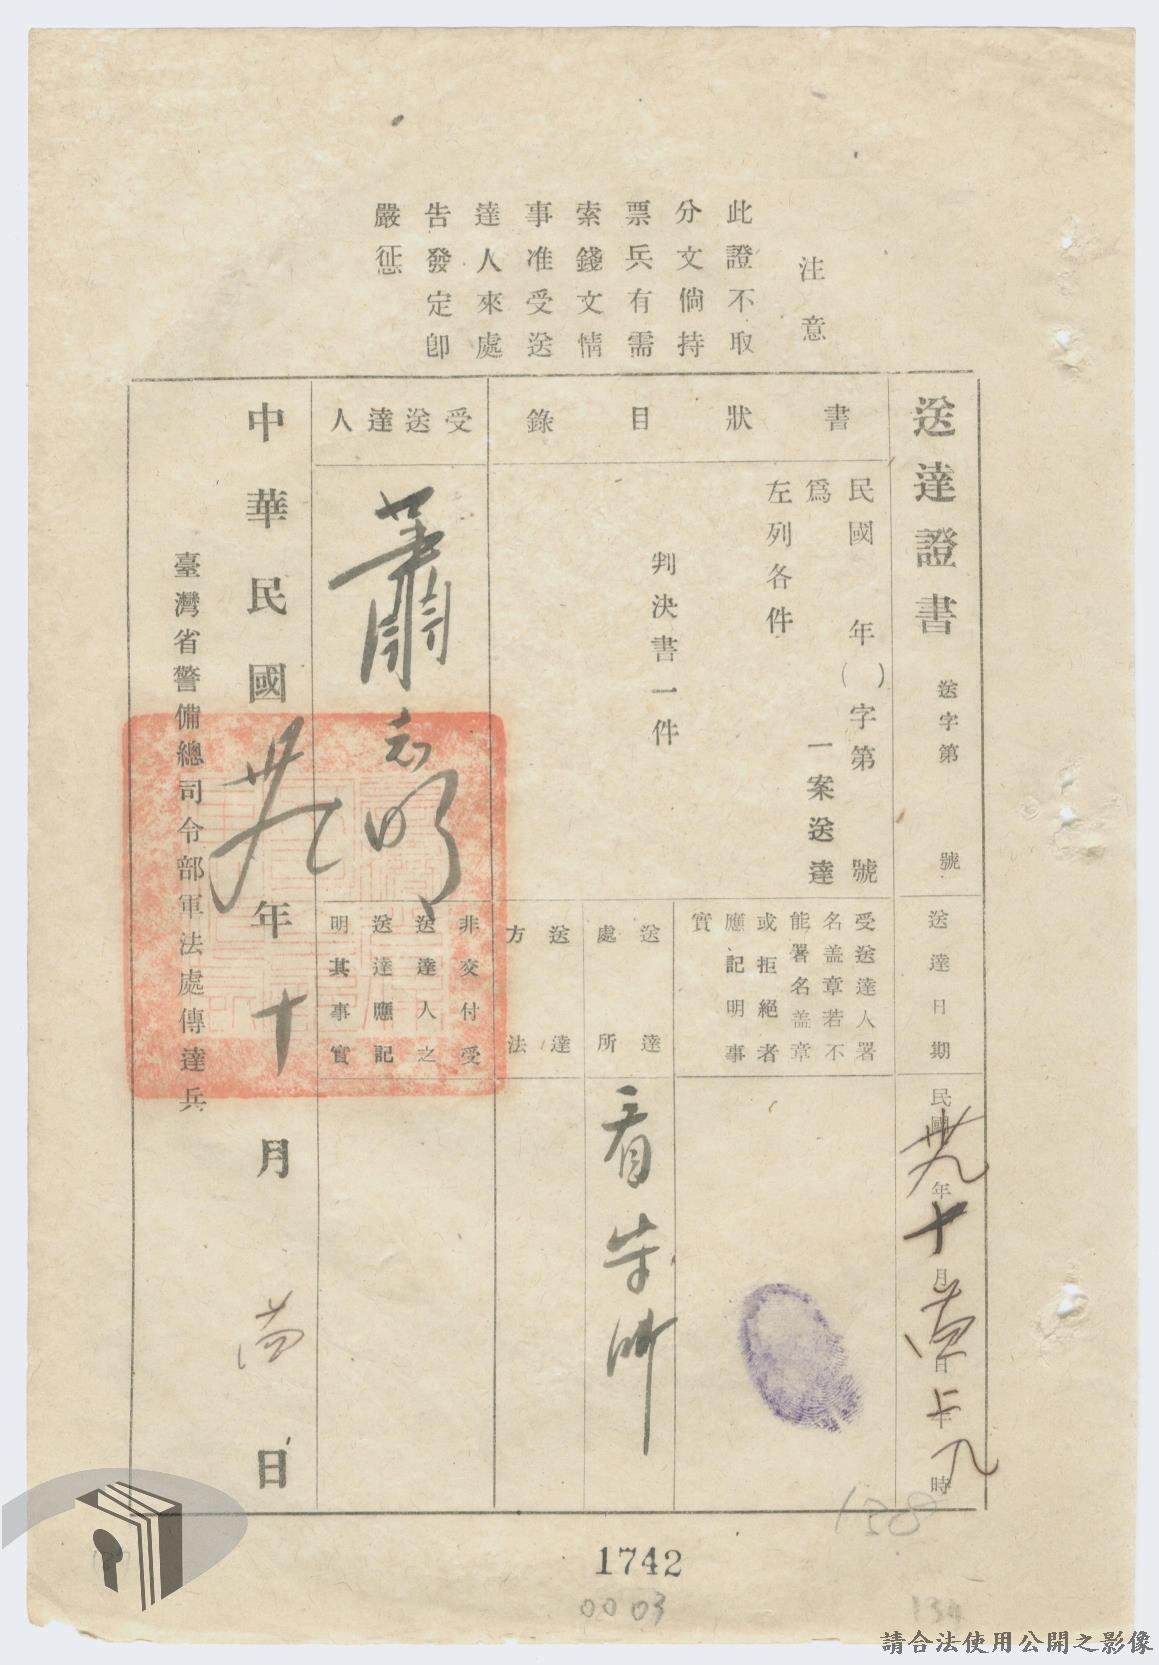 注意
此證不取
分文倘持
票兵有需
索錢文情
事准受送
達人來處
告發定卽
嚴懲
送達證書
送字第　號
送達日期
民國卅九年十月　日上午八時
書狀目錄
民國　年（　）字第　號
爲　一案送達
左列各件
判決書一件
受送達人署
名盖章若不
能署名盖章
或拒絕者
應記明事
實
送達處所
看守所
送達方法
受送達人
蕭志明
非交付受
送達人之
送達應記
明其事實
中華民國卅九年十月　日
臺灣省警備總司令部軍法處傳達兵
138
1742
0003
134
請合法使用公開之影像